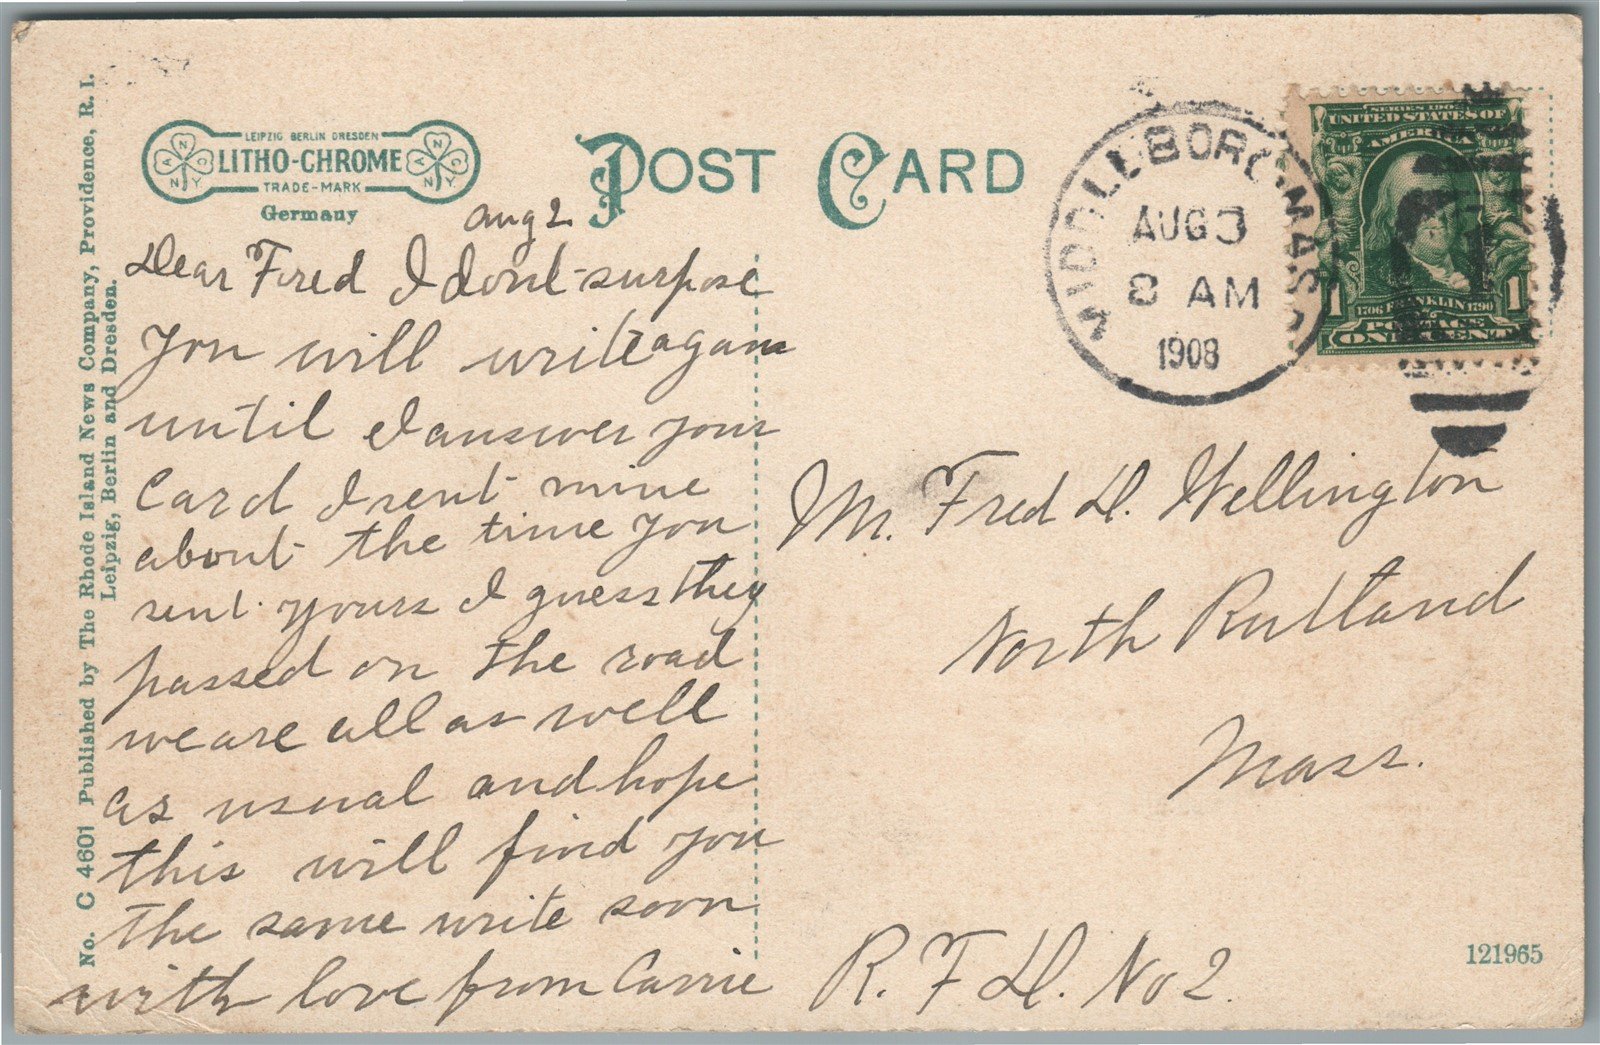 No. C 4601 Published by The Rhode Island News Company, Providence, R. I.
Leipzig, Berlin and Dresden.
LEIPZIG BERLIN DRESDEN
LITHO-CHROME
TRADE-MARK
ANCNY
ANCNY
Germany
POST CARD
MIDDLEBORO, MASS.
AUG 3
8 AM
1908
SERIES 1902
UNITED STATES OF
AMERICA
1706 FRANKLIN 1790
1 1
POSTAGE
ONE CENT
Aug 2
Dear Fred I dont surpose
you will write agam
until I answer your
Card I sent mine
about the time you
sent yours I guess they
passed on the road
we are all as well
as usual and hope
this will find you
the same write soon
with love from Carrie
Mr. Fred D. Wellington
North Rutland
Mass.
R. F. D. No 2.
121965